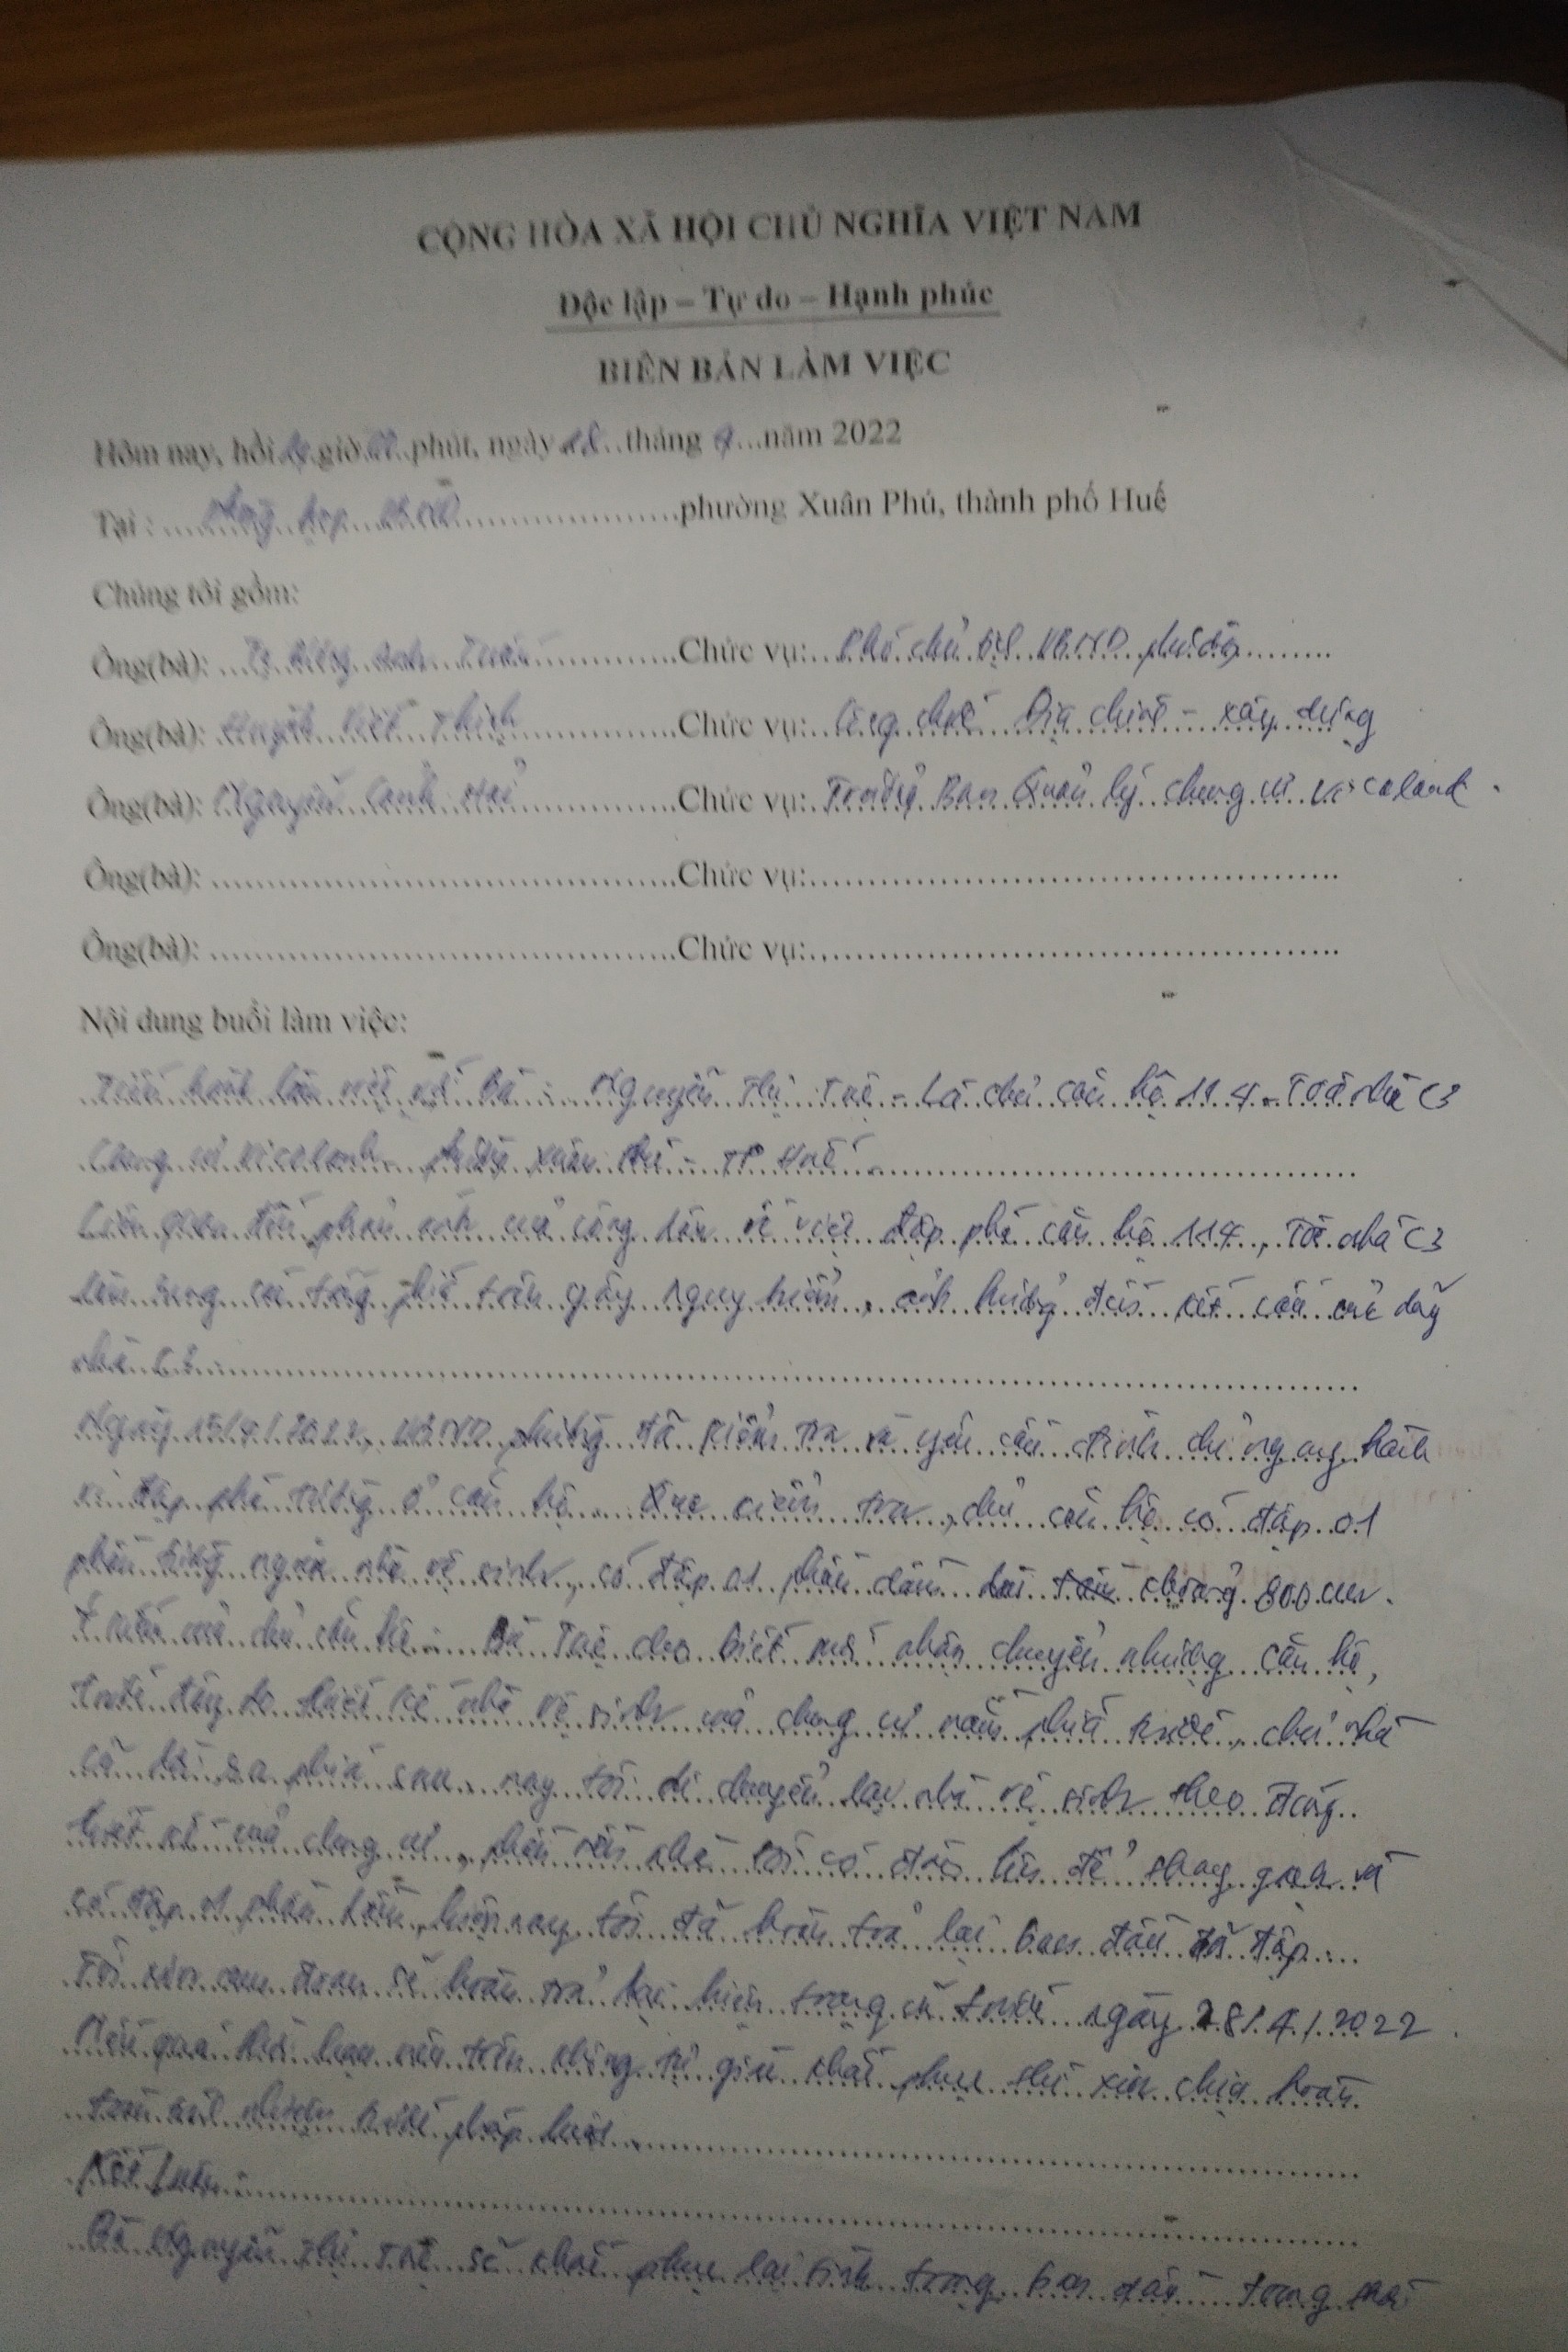 CỘNG HÒA XÃ HỘI CHỦ NGHĨA VIỆT NAM
Độc lập – Tự do – Hạnh phúc
BIÊN BẢN LÀM VIỆC
Hôm nay, hồi giờ phút, ngày 18 tháng 4 năm 2022
Tại : Phòng họp UBND phường Xuân Phú, thành phố Huế
Chúng tôi gồm:
Ông(bà): Anh Tuấn Chức vụ: Phó chủ tịch UBND phường
Ông(bà): Huỳnh Viết Thịnh Chức vụ: Công chức Địa chính - xây dựng
Ông(bà): Nguyễn Cảnh Hải Chức vụ: Trưởng Ban Quản lý chung cư Vicoland.
Ông(bà): Chức vụ:
Ông(bà): Chức vụ:
Nội dung buổi làm việc:
Tiến hành làm việc với bà : Nguyễn Thị - Là chủ căn hộ 11.4 - Toà nhà C3
Chung cư Vicoland - phường Xuân Phú - TP Huế.
Liên quan đến phản ánh của công dân về việc đập phá căn hộ 11.4, Toà nhà C3
gây nguy hiểm, ảnh hưởng đến kết cấu của dãy
nhà C3.
Ngày 15/4/2022, UBND phường đã kiểm tra và yêu cầu đình chỉ ngay hành
vi đập phá tường ở căn hộ. Qua kiểm tra, chủ căn hộ có đập 01
phần tường ngăn nhà vệ sinh, có đập 01 phần dầm dài khoảng 800 cm.
Ý kiến của chủ căn hộ : Bà cho biết mới nhận chuyển nhượng căn hộ,
trước đây do thiết kế nhà vệ sinh của chung cư nằm phía trước, chủ nhà
cũ dời ra phía sau, nay tôi di chuyển lại nhà vệ sinh theo đúng
thiết kế của chung cư, phần nền nhà tôi có đục lên để thay gạch và
có đập 01 phần dầm, hiện nay tôi đã hoàn trả lại ban đầu đã đập.
Tôi xin cam đoan sẽ hoàn trả lại hiện trạng cũ trước ngày 28/4/2022.
Nếu quá thời hạn nêu trên không tự giác khắc phục thì xin chịu hoàn
toàn trách nhiệm trước pháp luật.
Kết luận :
Bà Nguyễn Thị sẽ khắc phục lại tình trạng ban đầu trong thời